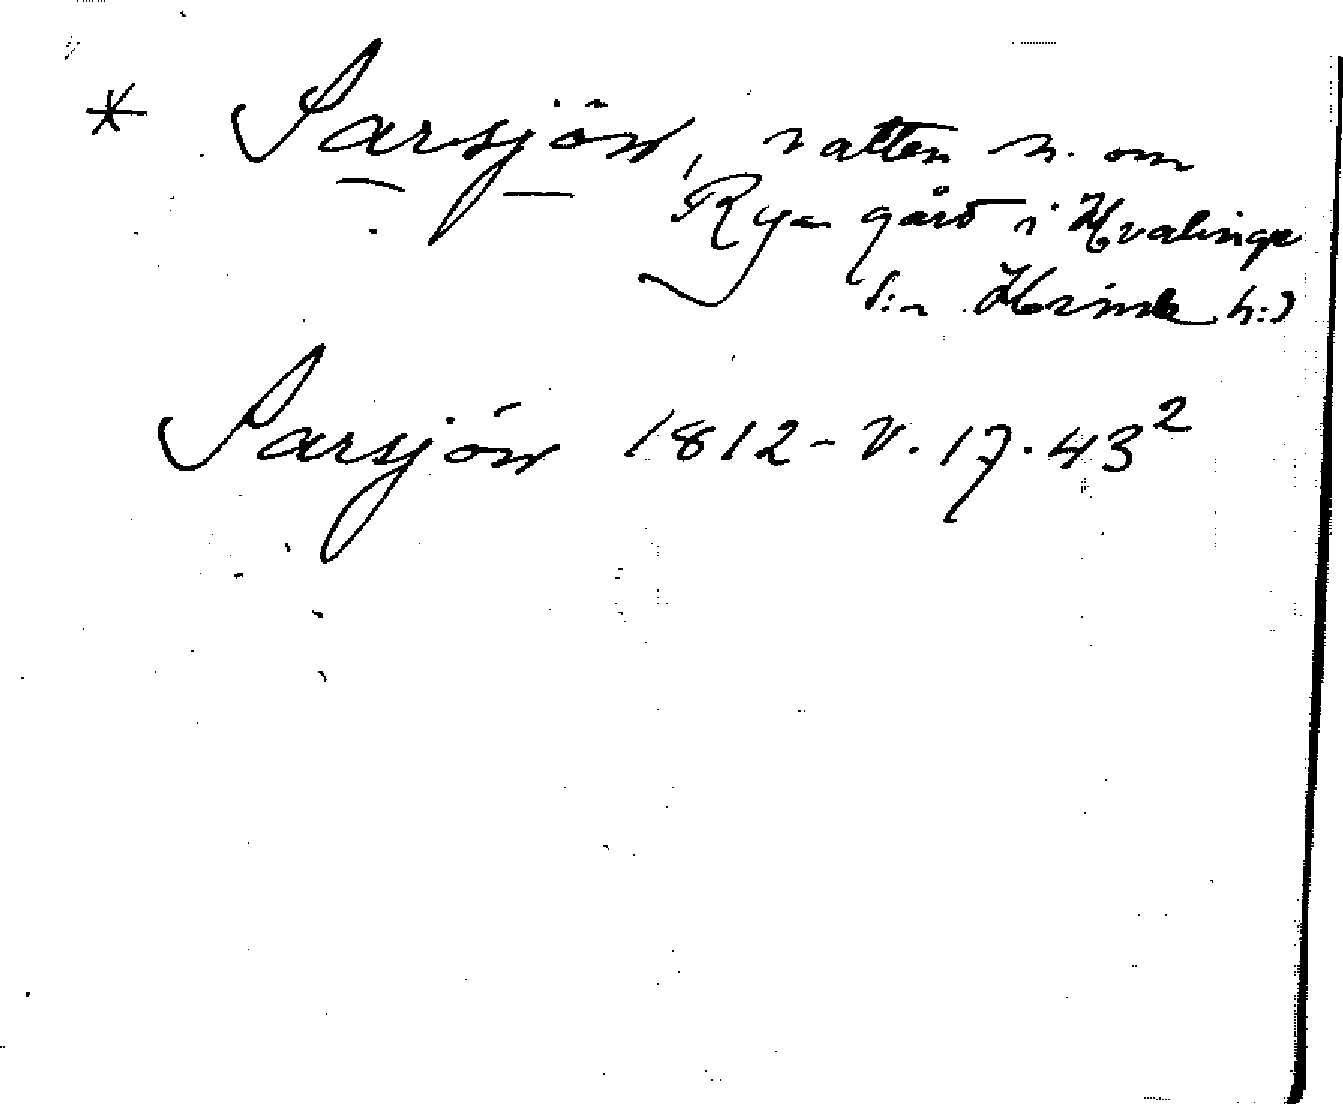 * Sarsjön, vatten n. om
Rya gård i Hvalinge
s:n Himle h:d
Sarsjön 1812 - V. 17. 43²